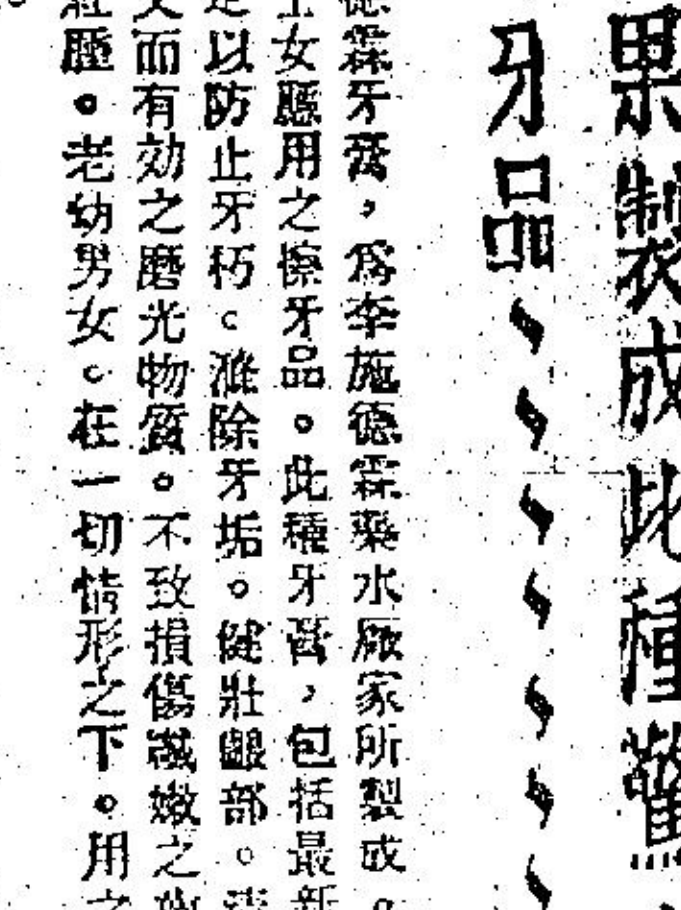 果製成此種驚
牙品
德霖牙膏，爲李施德霖藥水廠家所製成。
女應用之擦牙品。此種牙膏，包括最新
以防止牙朽。滌除牙垢。健壯齦部。清
而有効之磨光物質。不致損傷嫩之
紅腫。老幼男女。在一切情形之下。用之